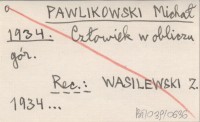 PAWLIKOWSKI Michał
1934. Człowiek w obliczu
gór.
Rec.: WASILEWSKI Z.
1934...